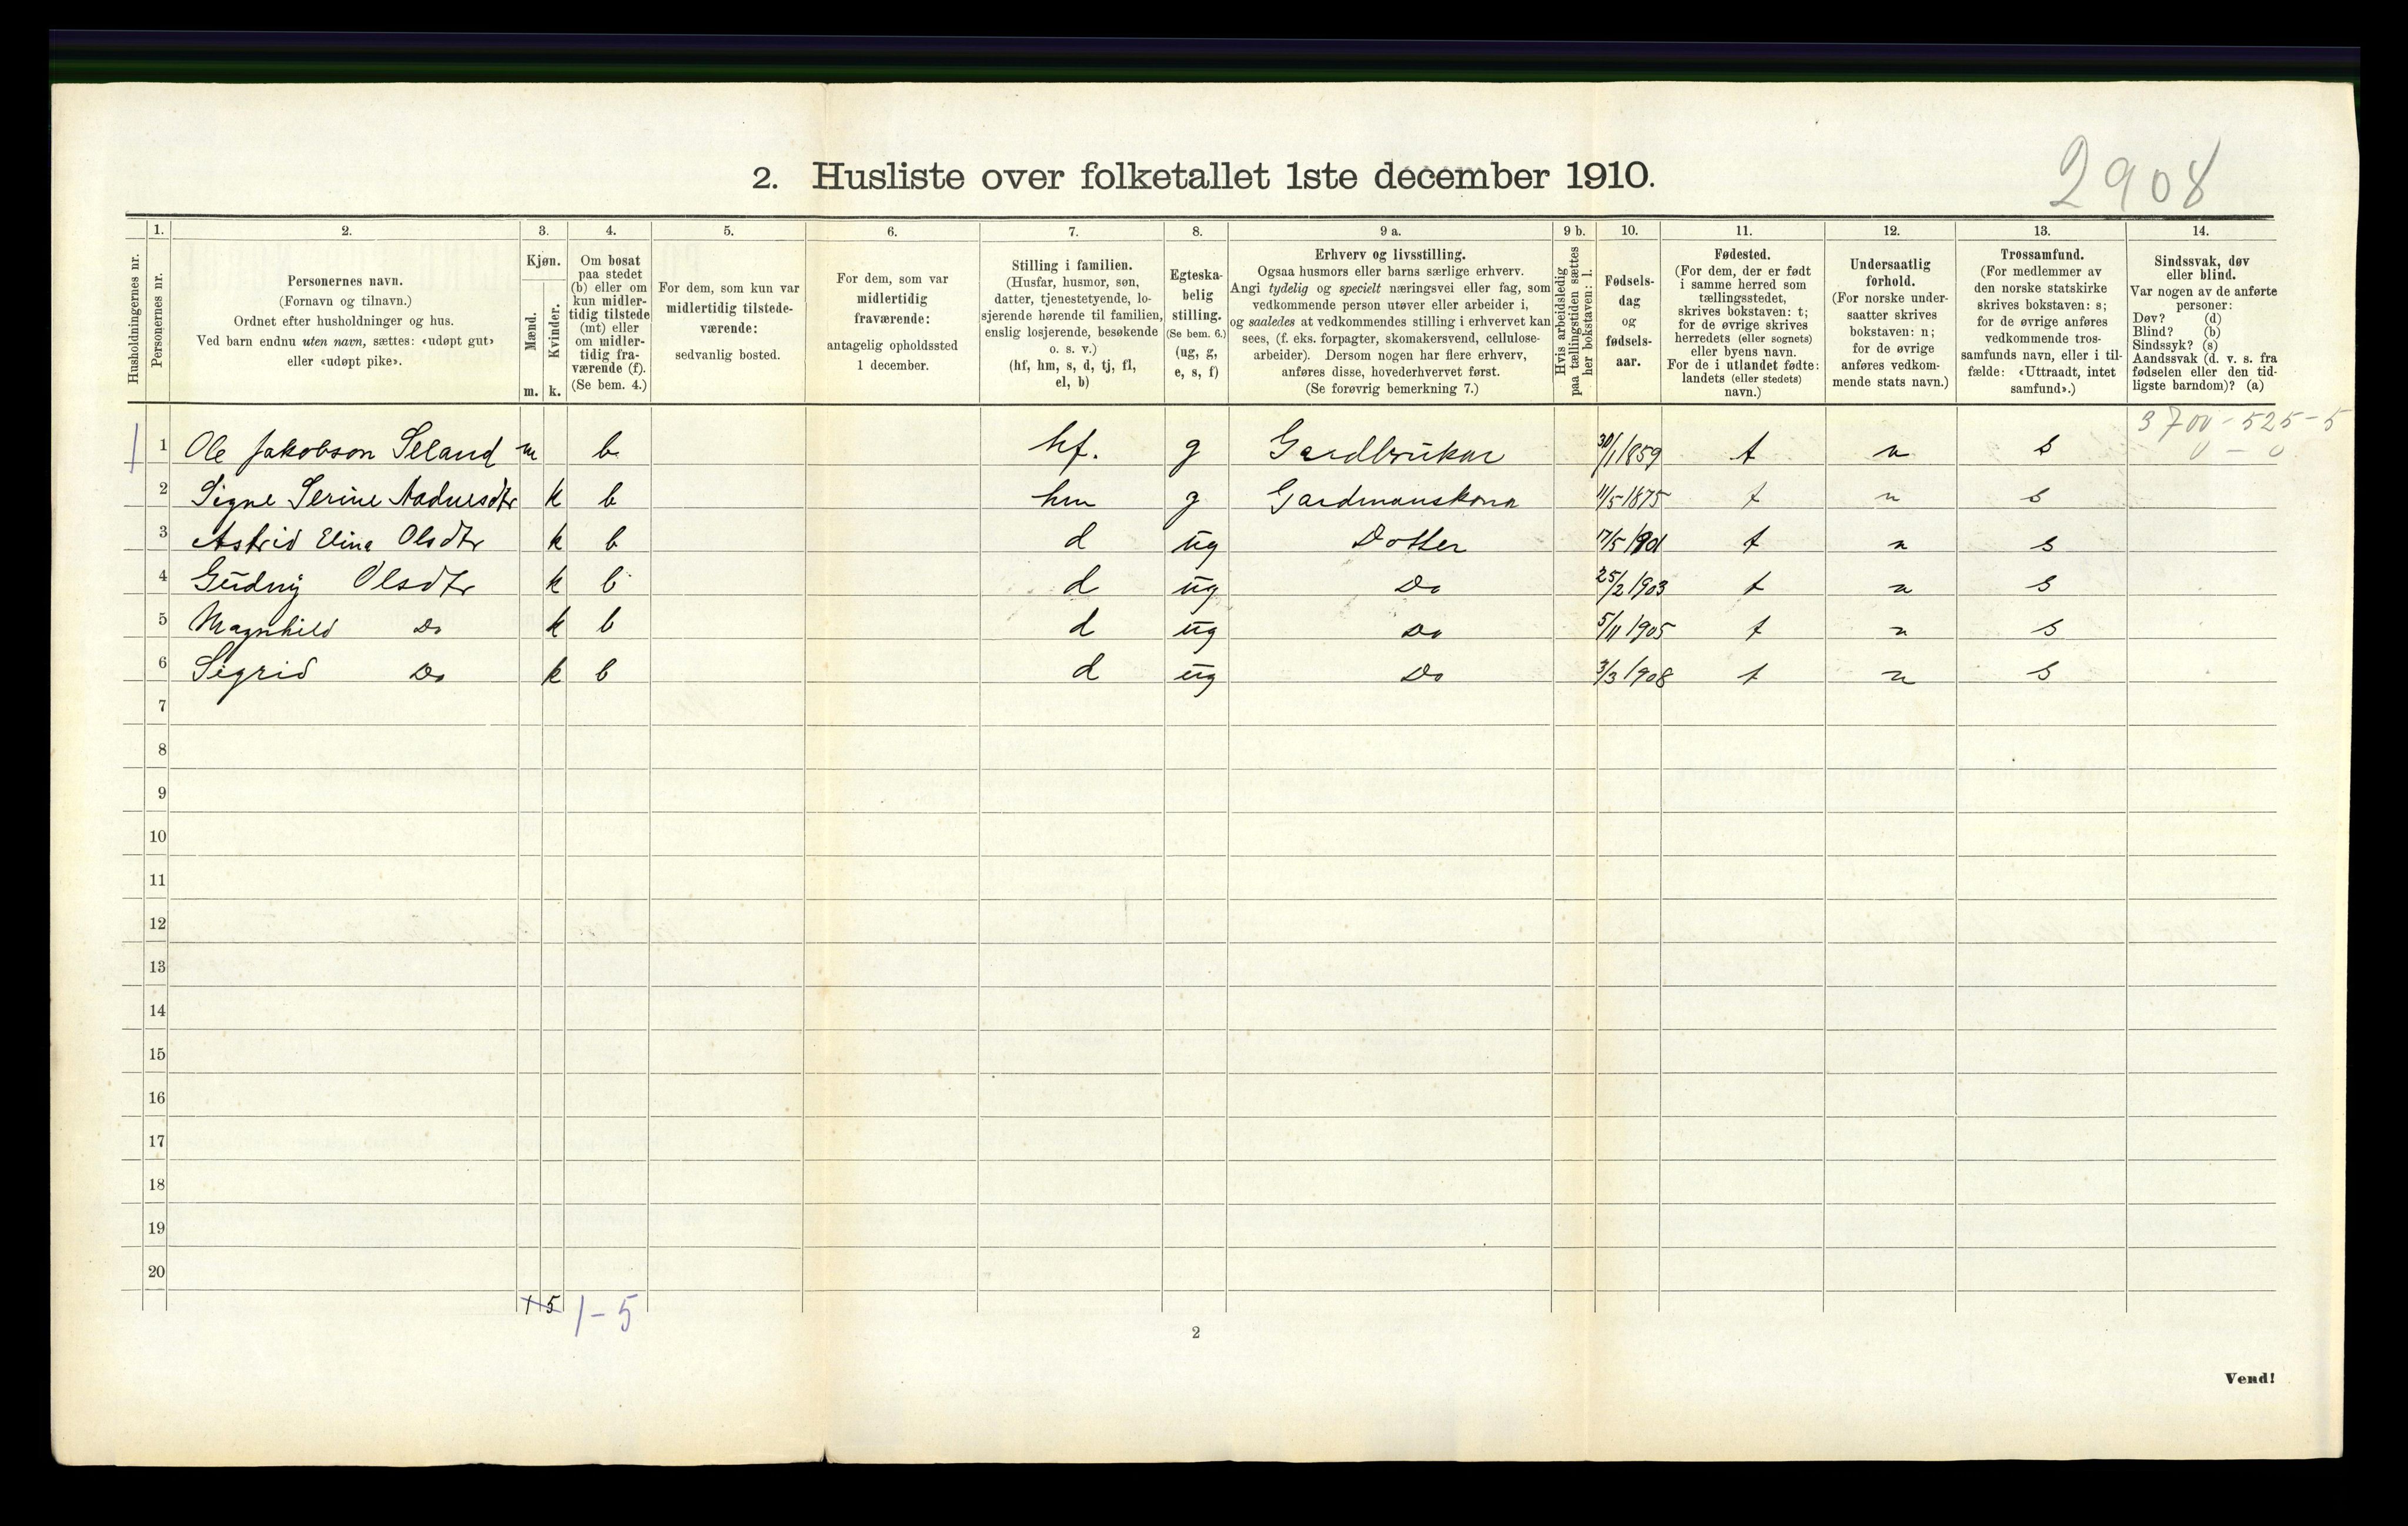 2908
2. Husliste over folketallet 1ste december 1910.
Husholdningernes nr.
1.
Personernes nr.
2.
Personernes navn.
(Fornavn og tilnavn.)
Ordnet efter husholdninger og hus.
Ved barn endnu uten navn, sættes: «udøpt gut»
eller «udøpt pike».
3.
Kjøn.
Mænd.
Kvinder.
m. k.
4.
Om bosat
paa stedet
(b) eller om
kun midler-
tidig tilstede
(mt) eller
om midler-
tidig fra-
værende (f).
(Se bem. 4.)
5.
For dem, som kun var
midlertidig tilstede-
værende:
sedvanlig bosted.
6.
For dem, som var
midlertidig
fraværende:
antagelig opholdssted
1 december.
7.
Stilling i familien.
(Husfar, husmor, søn,
datter, tjenestetyende, lo-
sjerende hørende til familien,
enslig losjerende, besøkende
o. s. v.)
(hf, hm, s, d, tj, fl,
el, b)
8.
Egteska-
belig
stilling.
(Se bem. 6.)
(ug, g,
e, s, f)
9 a.
Erhverv og livsstilling.
Ogsaa husmors eller barns særlige erhverv.
Angi tydelig og specielt næringsvei eller fag, som
vedkommende person utøver eller arbeider i,
og saaledes at vedkommendes stilling i erhvervet kan
sees, (f. eks. forpagter, skomakersvend, cellulose-
arbeider). Dersom nogen har flere erhverv,
anføres disse, hovederhvervet først.
(Se forøvrig bemerkning 7.)
9 b.
Hvis arbeidsledig
paa tællingstiden sættes
her bokstaven: l.
10.
Fødsels-
dag
og
fødsels-
aar.
11.
Fødested.
(For dem, der er født
i samme herred som
tællingsstedet,
skrives bokstaven: t;
for de øvrige skrives
herredets (eller sognets)
eller byens navn.
For de i utlandet fødte:
landets (eller stedets)
navn.)
12.
Undersaatlig
forhold.
(For norske under-
saatter skrives
bokstaven: n;
for de øvrige
anføres vedkom-
mende stats navn.)
13.
Trossamfund.
(For medlemmer av
den norske statskirke
skrives bokstaven: s;
for de øvrige anføres
vedkommende tros-
samfunds navn, eller i til-
fælde: «Uttraadt, intet
samfund».)
14.
Sindssvak, døv
eller blind.
Var nogen av de anførte
personer:
Døv? (d)
Blind? (b)
Sindssyk? (s)
Aandssvak (d. v. s. fra
fødselen eller den tid-
ligste barndom)? (a)
3700-525-5
0 - 0
1 Ole Jakobson Seland m b hf. g Gardbrukar 30/1 1859 t n s
2 Signe Serine Aadnesdtr k b hm g Gardmanskona 11/5 1875 t n s
3 Astrid Elina Olsdtr k b d ug Dotter 17/5 1901 t n s
4 Gudny Olsdtr k b d ug Do 25/2 1903 t n s
5 Magnhild Do k b d ug Do 5/11 1905 t n s
6 Sigrid Do k b d ug Do 3/3 1908 t n s
7
8
9
10
11
12
13
14
15
16
17
18
19
20
1 5 1-5
2
Vend!